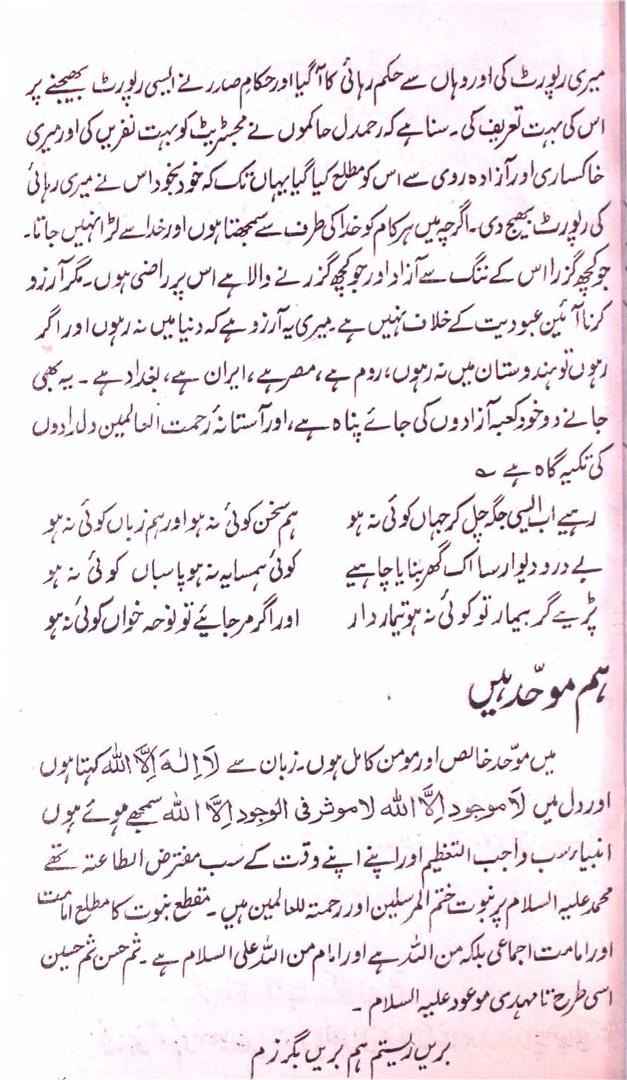 میری رپورٹ کی اور وہاں سے حکم رہائی کا آگیا اور حکام صدر نے ایسی رپورٹ بھیجنے پر
اس کی بہت تعریف کی۔ سنا ہے کہ رحمدل حاکموں نے مجسٹریٹ کو بہت نفریں کی اور میری
خاکساری اور آزادہ روی سے اس کو مطلع کیا گیا یہاں تک کہ خود بخود اس نے میری رہائی
کی رپورٹ بھیج دی۔ اگرچہ میں ہر کام کو خدا کی طرف سے سمجھتا ہوں اور خدا سے لڑا نہیں جاتا۔
جو کچھ گزرا اس کے ننگ سے آزاد اور جو کچھ گزرنے والا ہے اس پر راضی ہوں۔ مگر آرزو
کرنا آئین عبودیت کے خلاف نہیں ہے۔ میری یہ آرزو ہے کہ دنیا میں نہ رہوں اور اگر
رہوں تو ہندوستان میں نہ رہوں، روم ہے، مصر ہے، ایران ہے، بغداد ہے۔ یہ بھی
جانے دو خود کعبہ آزادوں کی جائے پناہ ہے، اور آستانۂ رحمت العالمین دلدادوں
کی تکیہ گاہ ہے ؎
رہیے اب ایسی جگہ چل کر جہاں کوئی نہ ہو ہم سخن کوئی نہ ہو اور ہم زباں کوئی نہ ہو
بے در و دیوار سا اک گھر بنایا چاہیے کوئی ہمسایہ نہ ہو پاسباں کوئی نہ ہو
پڑیے گر بیمار تو کوئی نہ ہو تیمار دار اور اگر مر جائیے تو نوحہ خواں کوئی نہ ہو
ہم موحّد ہیں
میں موحّد خالص اور مومن کامل ہوں۔ زبان سے لَا اِلٰہَ اِلَّا اللہ کہتا ہوں
اور دل میں لَا موجود اِلَّا اللہ لا موثر فی الوجود اِلَّا اللہ سمجھے ہوئے ہوں
انبیاء سب واجب التعظیم اور اپنے اپنے وقت کے سب مفترض الطاعتہ تھے
محمد علیہ السلام پر نبوت ختم المرسلین اور رحمتہ للعالمین ہیں۔ مقطع نبوت کا مطلع امامت
اور امامت اجماعی بلکہ من اللہ ہے اور امام من اللہ علی السلام ہے۔ ثم حسن ثم حسین
اسی طرح تا مہدی موعود علیہ السلام۔
بریں زیستم ہم بریں بگزرم